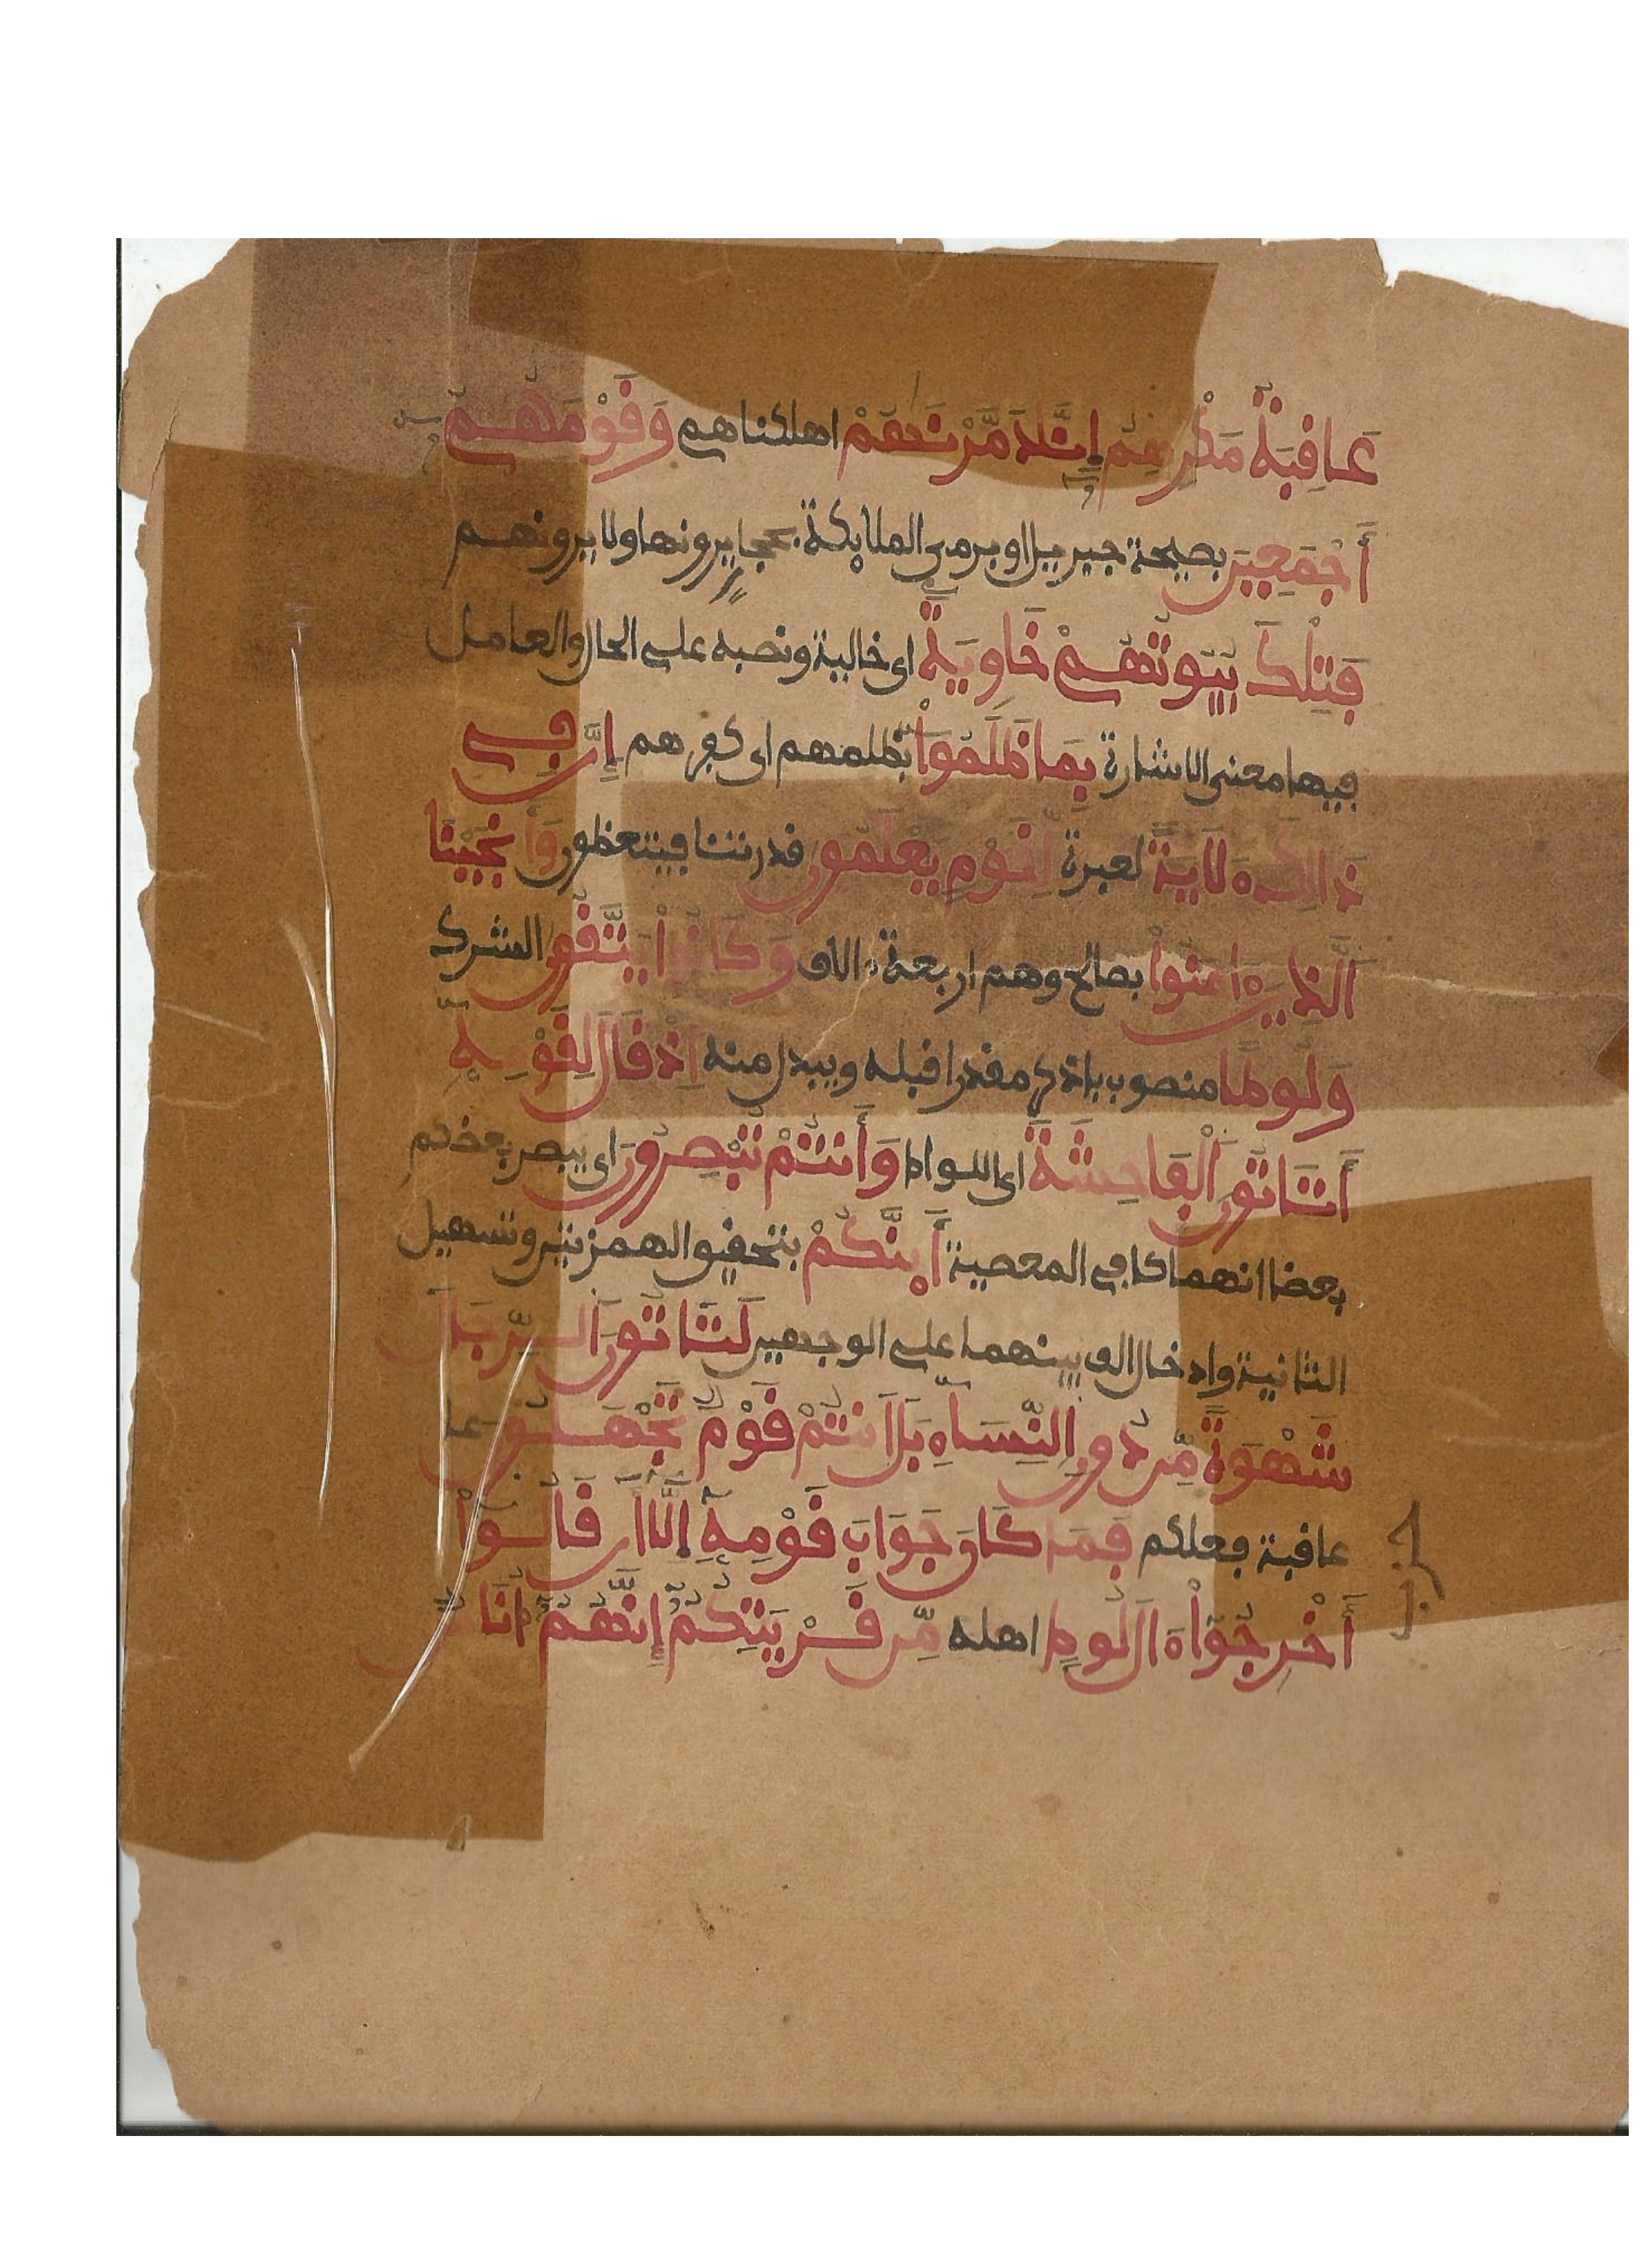 عَاقِبَةُ مَكْرِهِمْ إِنَّا دَمَّرْنَٰهُمْ اهلكناهم وَقَوْمَهُمْ
أَجْمَعِينَ بصيحة جبريل او برمي الملائكة بحجارة يرونها ولا يرونهم
فَتِلْكَ بُيُوتُهُمْ خَاوِيَةً اى خالية ونصبه على الحال والعامل
فيها معنى الاشارة بِمَا ظَلَمُوٓاْ بظلمهم اى كفرهم إِنَّ فِى
ذَٰلِكَ ءلَايَةً لعبرة لِّقَوْمٍ يَعْلَمُونَ قدرتنا فيتعظون وَأَنجَيْنَا
الَّذِينَ ءامَنُواْ بصالح وهم اربعة ءالاف وَكَانُواْ يَتَّقُونَ الشرك
وَلُوطًا منصوب باذكر مقدرا قبله ويبدل منه إِذْ قَالَ لِقَوْمِهِۦٓ
أَتَاتُونَ اَلْفَاحِشَةَ اى اللواط وَأَنتُمْ تُبْصِرُونَ اى يبصر بعضكم
بعضا انهماكا في المعصية أَىِٕنَّكُمْ بتحقيق الهمزتين وتسهيل
الثانية وادخال الف بينهما على الوجهين لَتَاتُونَ اَلرِّجَالَ
شَهْوَةً مِّن دُونِ اِلنِّسَآءِ بَلَ اَنتُمْ قَوْمٌ تَجْهَلُونَ
عاقبة فعلكم فَمَا كَانَ جَوَابَ قَوْمِهِۦٓ إِلَّآ أَن قَالُوٓاْ
أَخْرِجُوٓاْ ءَالَ لُوطٍ اهله مِّن قَرْيَتِكُمْ إِنَّهُمْ أُنَاسٌ
حزب